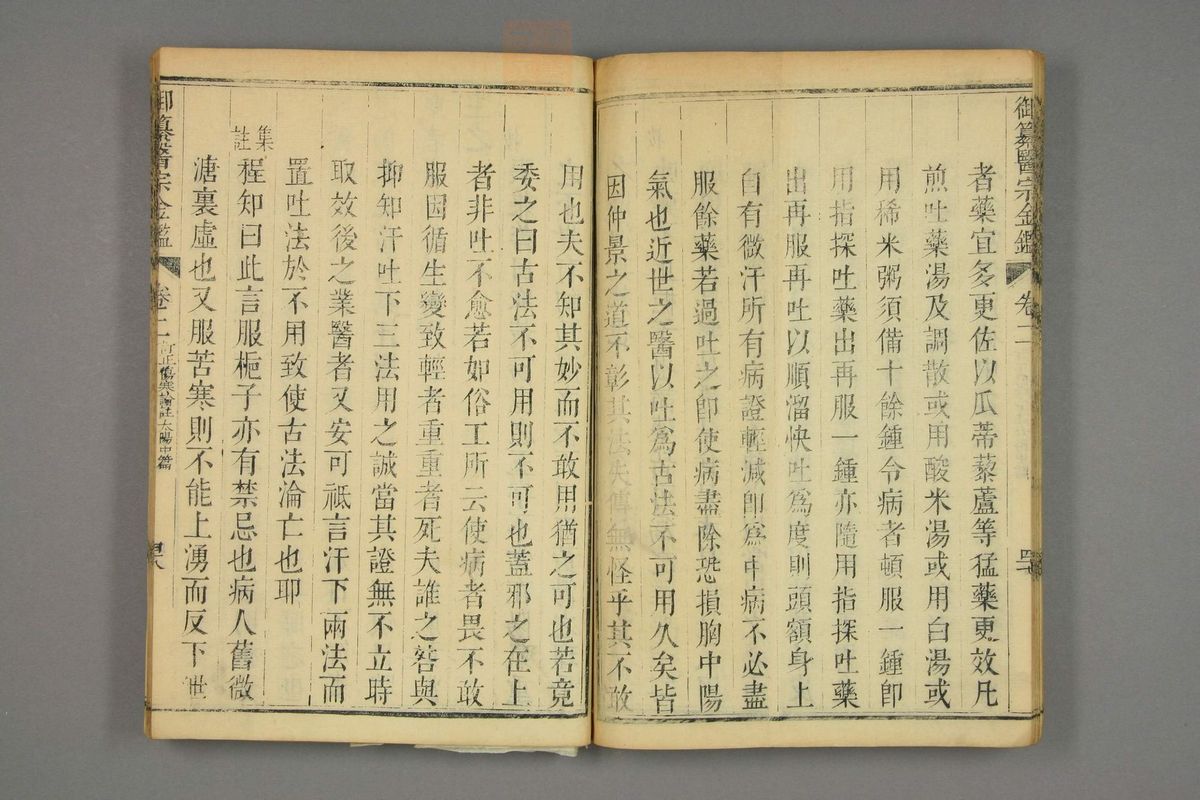 御纂醫宗金鑑 卷二
者藥宜多更佐以瓜蒂藜蘆等猛藥更效凡
煎吐藥湯及調散或用酸米湯或用白湯或
用稀米粥須備十餘鍾令病者頓服一鍾即
用指探吐藥出再服一鍾亦隨用指探吐藥
出再服再吐以順溜快吐爲度則頭額身上
自有微汗所有病證輕減即爲中病不必盡
服餘藥若過吐之即使病盡除恐損胸中陽
氣也近世之醫以吐爲古法不可用久矣皆
因仲景之道不彰其法失傳無怪乎其不敢
用也夫不知其妙而不敢用猶之可也若竟
委之曰古法不可用則不可也蓋邪之在上
者非吐不愈若如俗工所云使病者畏不敢
服因循生變致輕者重重者死夫誰之咎與
抑知汗吐下三法用之誠當其證無不立時
取效後之業醫者又安可祗言汗下兩法而
置吐法於不用致使古法淪亡也耶
集註程知曰此言服梔子亦有禁忌也病人舊微
溏裏虛也又服苦寒則不能上湧而反下世
御纂醫宗金鑑 卷二 訂正傷寒論註太陽中篇